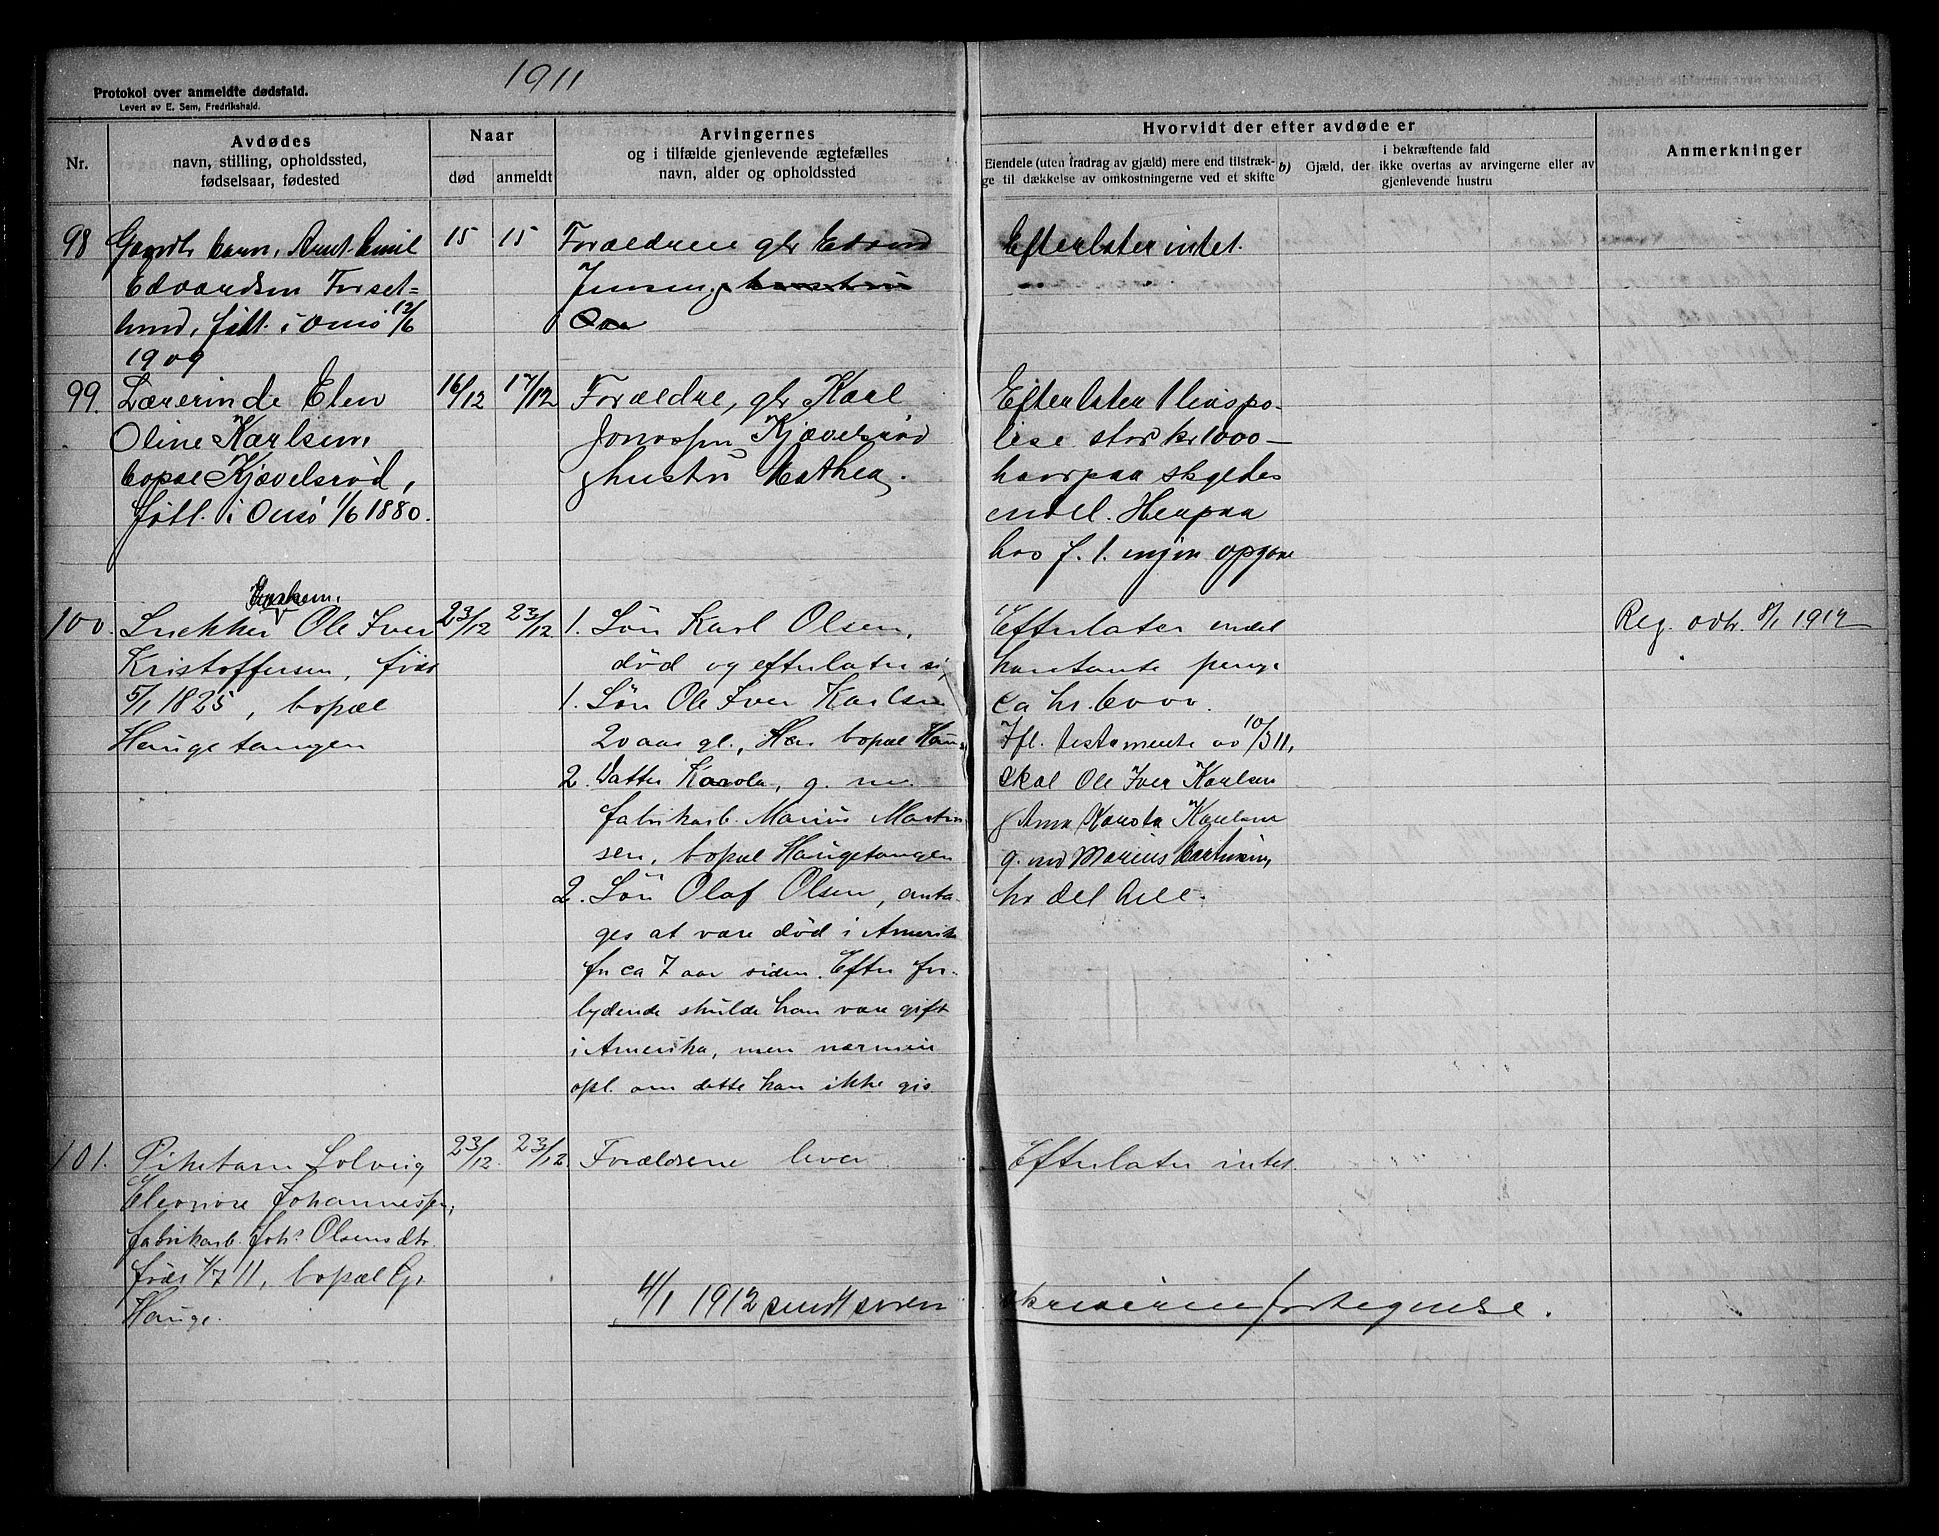 1911
Protokol over anmeldte dødsfald.
Levert av E. Sem, Fredrikshald.
Nr.
Avdødes
navn, stilling, opholdssted,
fødselsaar, fødested
Naar
død
anmeldt
Arvingernes
og i tilfælde gjenlevende ægtefælles
navn, alder og opholdssted
Hvorvidt der efter avdøde er
Eiendele (uten fradrag av gjæld) mere end tilstræk-
ge til dækkelse av omkostningerne ved et skifte
b)
i bekræftende fald
Gjæld, der ikke overtas av arvingerne eller av
gjenlevende hustru
Anmerkninger
98
barn, Arnt Emil
Edvardsen Torset-
lund, født i Onsø 12/6
1909
15
15
Forældrene gbr Edvard
Jensen
Efterlater intet.
99.
Lærerinde Elen
Oline Karlsen,
bopæl Kjøvelsrød,
født i Onsø 1/6 1880.
16/12
17/12
Forældre, gbr Karl
Kjøvelsrød
g hustru Mathea.
Efterlater 1 livspo-
lise stor kr 1000-
hvorpaa skyldes
endel. Herpaa
f. l. ingen opgave
100.
Snekker Ole Iver
Kristoffersen, født
5/1 1825, bopæl
Haugetangen
23/12
23/12
1. Søn Karl Olsen,
død og efterlater sig
1. Søn Ole Iver Karlsen
20 aar gl., Har bopæl
2. Datter Karola, g. m.
fabrikarb. Marius Martin
sen, bopæl Haugetangen
2. Søn Olaf Olsen, anta-
ges at være død i Amerika
for ca 7 aar siden. Efter for-
lydende skulde han være gift
i Amerika, men nærmere
opl. om dette kan ikke gis
Efterlater endel
kontante penge
ca kr. 6000.
Ifl. testamente av 10/3 11,
skal Ole Iver Karlsen
g Anna Karola Karlsen
g. med Marius Martinsen,
ha det hele.
Reg. avh. 8/1 1912
101.
Pikebarn Solveig
Eleonore Johannessen,
fabrikarb. Johs Olsens dtr.
født 4/7 11, bopæl Gr
Hauge.
23/12.
23/12
Forældrene lever
Efterlater intet.
4/1 1912 sendt soren
skriveren fortegnelse.